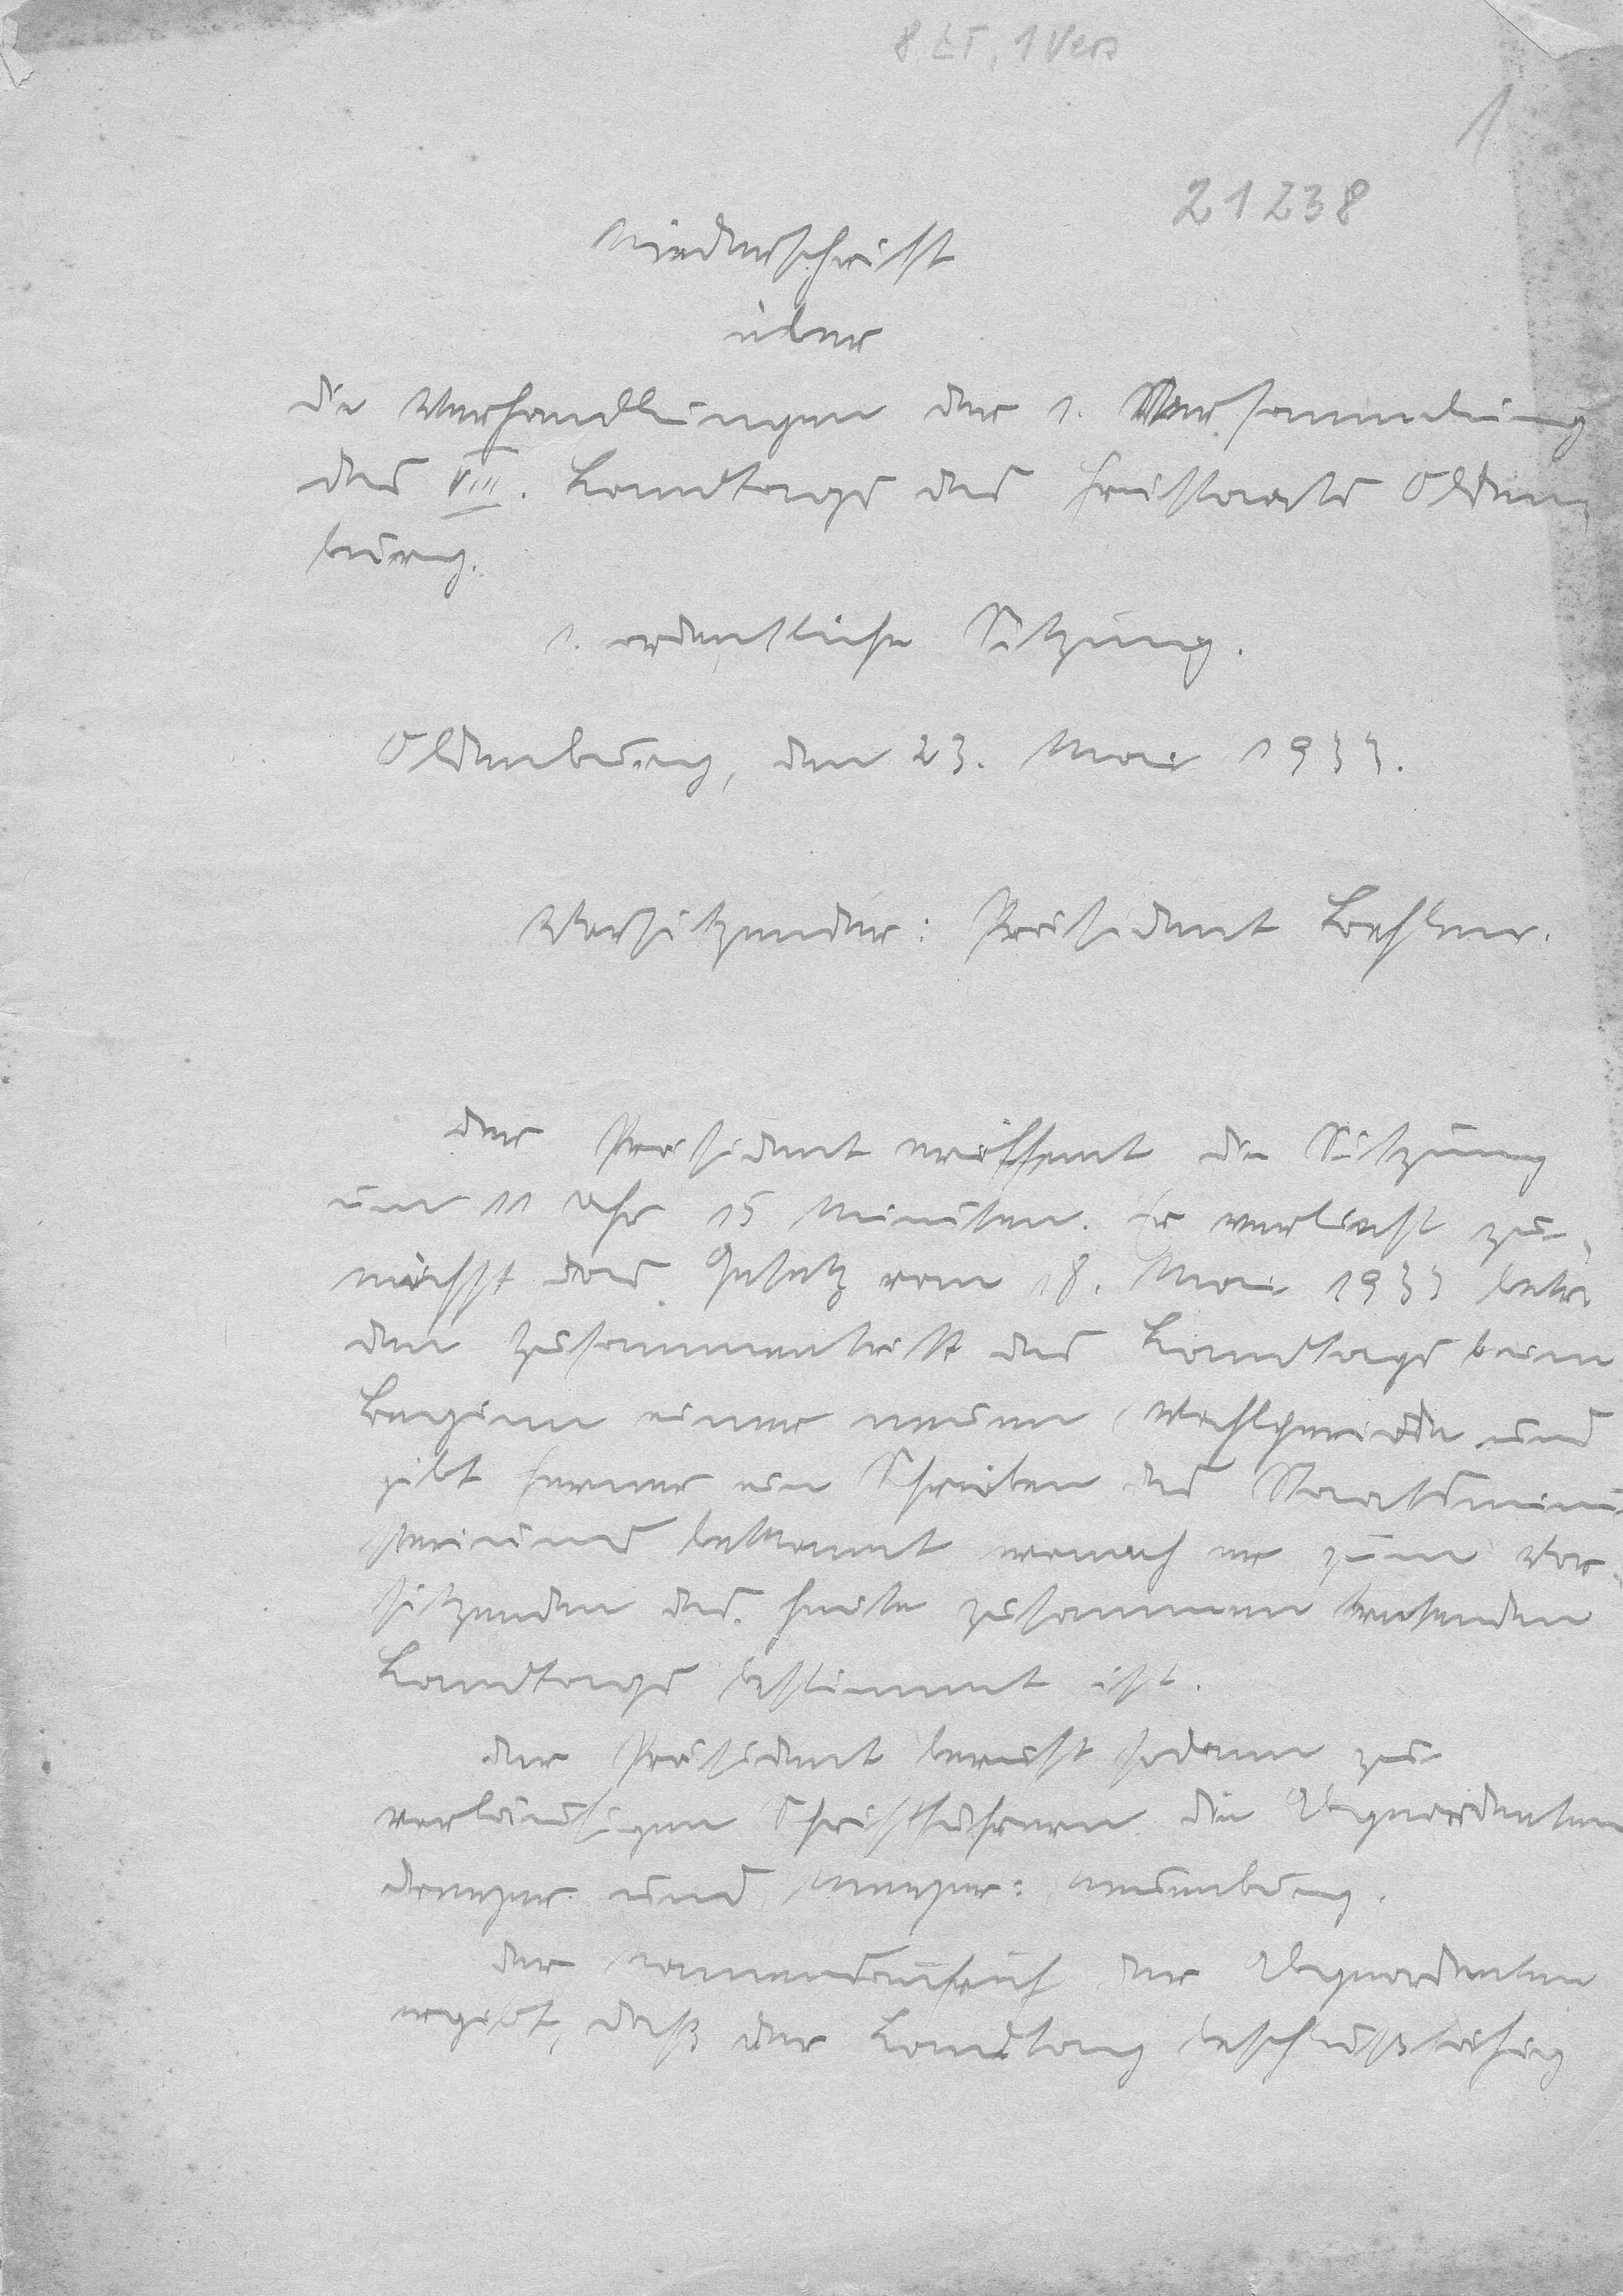 8 LT, 1 Vers
1
21238
Niederschrift
über
die Verhandlungen der 1. Versammlung
des VIII. Landtags des Freistaats Olden-
burg.
1. ordentliche Sitzung.
Oldenburg, den 23. Mai 1933.
Vorsitzender: Präsident
Der Präsident eröffnet die Sitzung
um 11 Uhr 15 Minuten. Er verliest zu-
nächst das Gesetz vom 18. Mai 1933 betr.
den Zusammentritt des Landtags beim
Beginn einer neuen Wahlperiode und
gibt ferner ein Schreiben des Staatsmini-
steriums bekannt wonach er zum Vor-
sitzenden des heute zusammen tretenden
Landtags bestimmt ist.
Der Präsident beruft sodann zu
vorläufigen Schriftführern die Abgeordneten
und Meyer: Neuenburg.
Der Namensaufruf der Abgeordneten
ergibt, daß der Landtag beschlußfähig